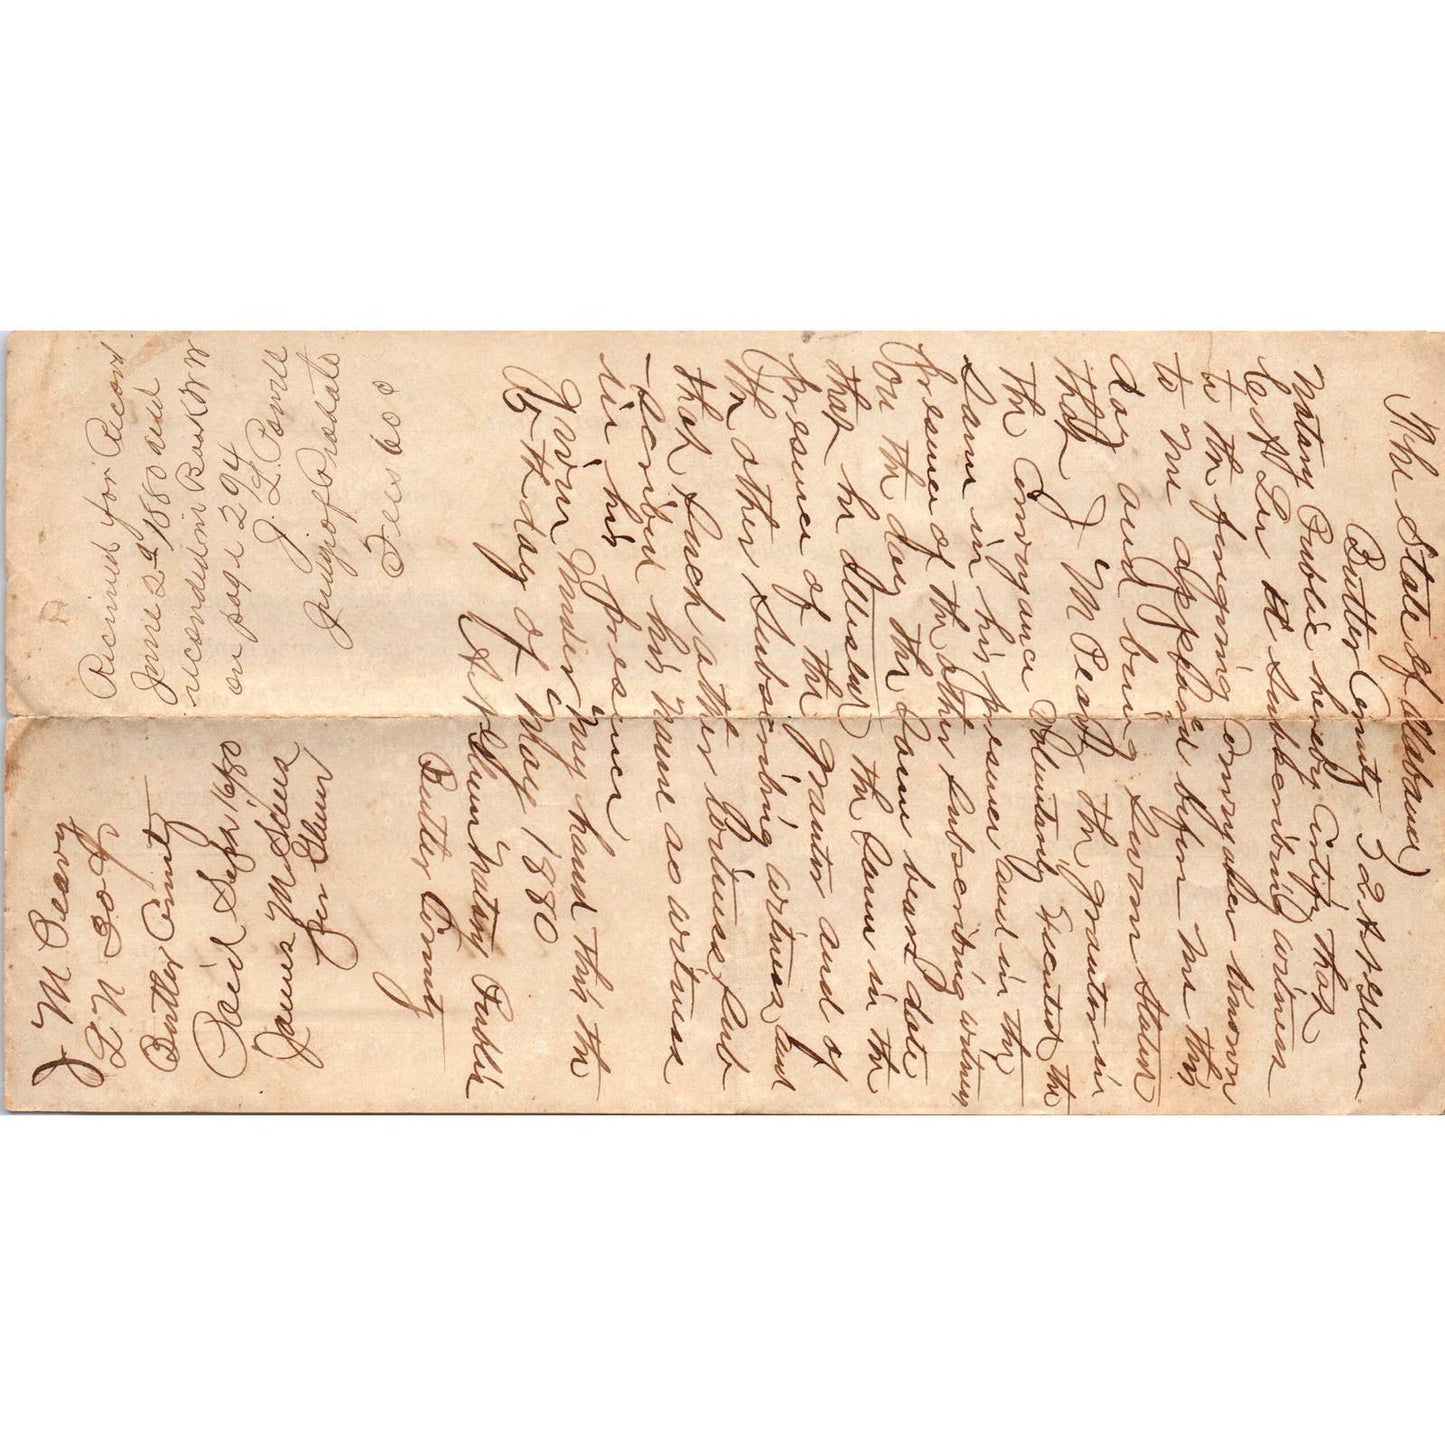 The State of Alabama)
Butler County I A A Glenn
Notary Public hereby Certify that
C A Lee A Subscribing witness
to the foregoing Conveyance known
to me appeared before me this
day and being sworn stated
that J M Peavy the grantor in
the Conveyance Voluntarily Executed the
same in his presence and in the
presence of the other subscribing witness
on the day the same bears date
that he attested the same in the
presence of the grantor and of
the other subscribing witness and
that such other witness sub
-scribed his name as witness
in his presence
Given under my hand this the
25th day of May 1880
A A Glenn Notary Public
Butler County
Received for Record
June 2d 1880 and
recorded in Book
on page 294
J. L. Powell
Judge of Probate
Fees 60 c
J M Peavy
Butler County
Paid Sept 16/80
James M
per Glenn